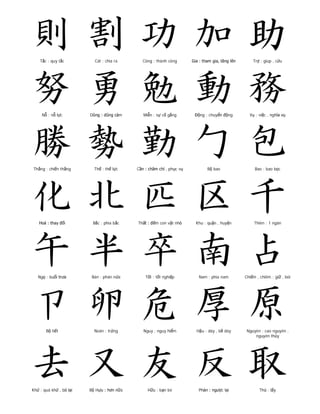 則 割 功 加 助
Tắc : quy tắc Cát : chia ra Công : thành công Gia : tham gia, tăng lên Trợ : giúp , cứu
努 勇 勉 動 務
Nỗ : nỗ lực Dũng : dũng cảm Miễn : sự cố gắng Động : chuyển động Vụ : việc , nghĩa vụ
勝 勢 勤 勹 包
Thắng : chiến thắng Thế : thế lực Cần : chăm chỉ , phục vụ Bộ bao Bao : bao bọc
化 北 匹 区 千
Hoá : thay đổi Bắc : phía bắc Thất : đếm con vật nhỏ Khu : quận , huyện Thiên : 1 ngàn
午 半 卒 南 占
Ngọ : buổi trưa Bán : phân nửa Tốt : tốt nghiệp Nam : phía nam Chiếm ,chiêm : giữ , bói
卩 卵 危 厚 原
Bộ tiết Noãn : trứng Nguy : nguy hiểm Hậu : dày , bề dày Nguyên : cao nguyên ,
nguyên thủy
去 又 友 反 取
Khứ : quá khứ , bỏ lại Bộ Hựu : hơn nữa Hữu : bạn bè Phản : ngược lại Thủ : lấy